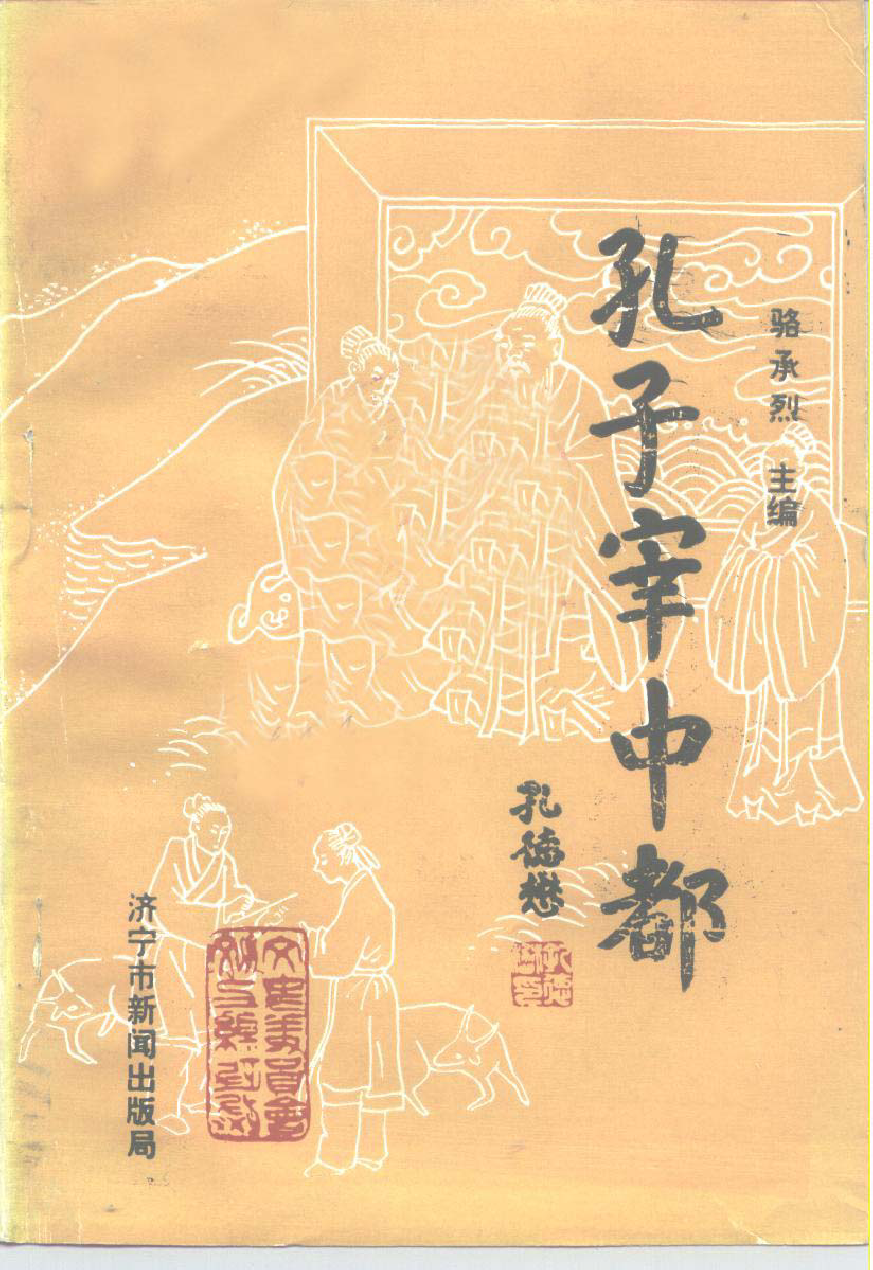 骆承烈 主编
孔子宰中都
孔德懋
文史委員會
济宁市新闻出版局